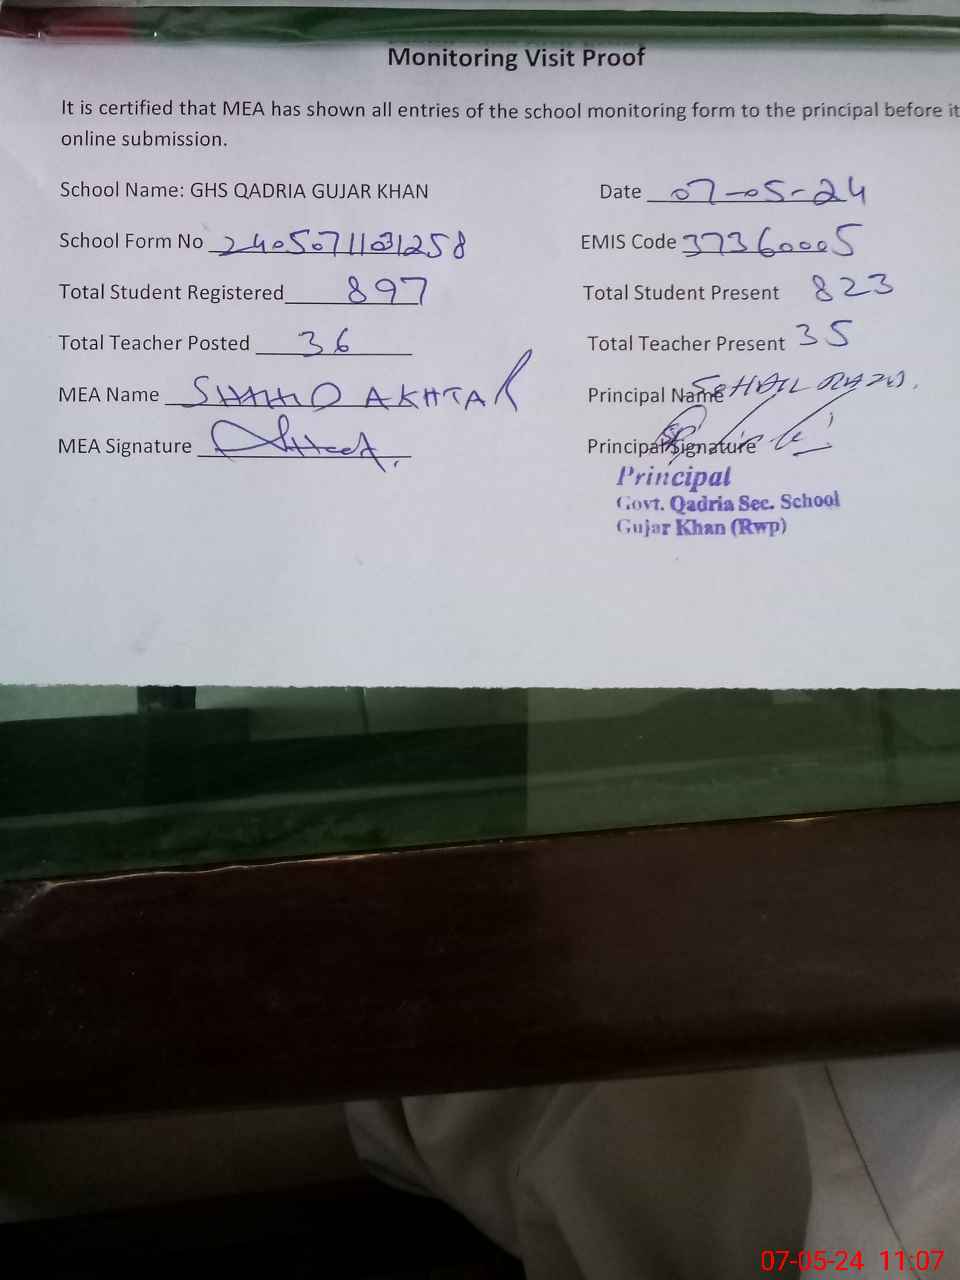 Monitoring Visit Proof
It is certified that MEA has shown all entries of the school monitoring form to the principal before it
online submission.
School Name: GHS QADRIA GUJAR KHAN Date 07-05-24
School Form No 24050711031258 EMIS Code 37360005
Total Student Registered 897 Total Student Present 823
Total Teacher Posted 36 Total Teacher Present 35
MEA Name SHAHID AKHTAR Principal Name SOHAIL
MEA Signature Principal Signature
Principal
Govt. Qadria Sec. School
Gujar Khan (Rwp)
07-05-24 11:07